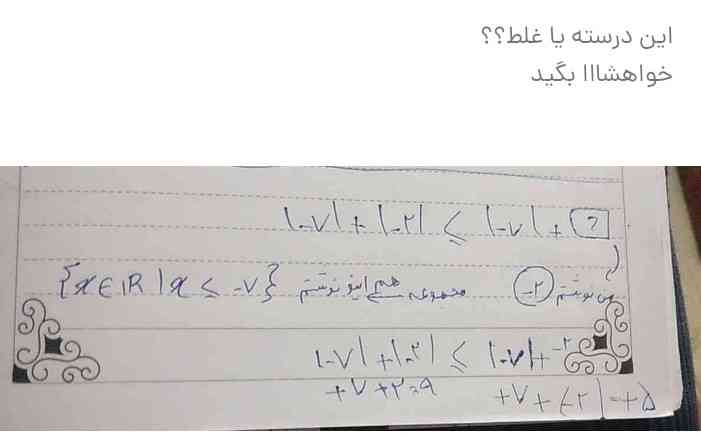 این درسته یا غلط؟؟
خواهشااا بگید
|-۷| + |-۲| ≤ |-۷| + ?
من نوشتم -۲ مجموعه هم اینو نوشتم {x ∈ IR | x ≤ -۷}
|-۷| + |-۲| ≤ |-۷| + -۲
+۷+۲=۹ +۷+(-۲)=+۵